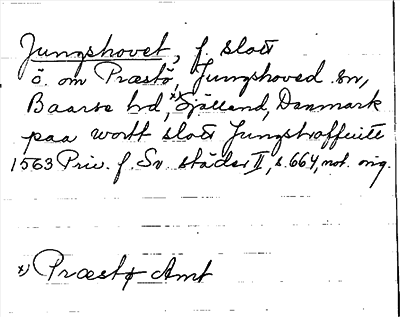 Jungshovet, f. slott
ö. om Præstö, Jungshoved sn,
Baarse hd, x) Sjælland, Danmark
paa wortt slott Jungshoffuitt
1563 Priv. f. Sv. städer II, s. 664, not. orig.
x) Præstø Amt